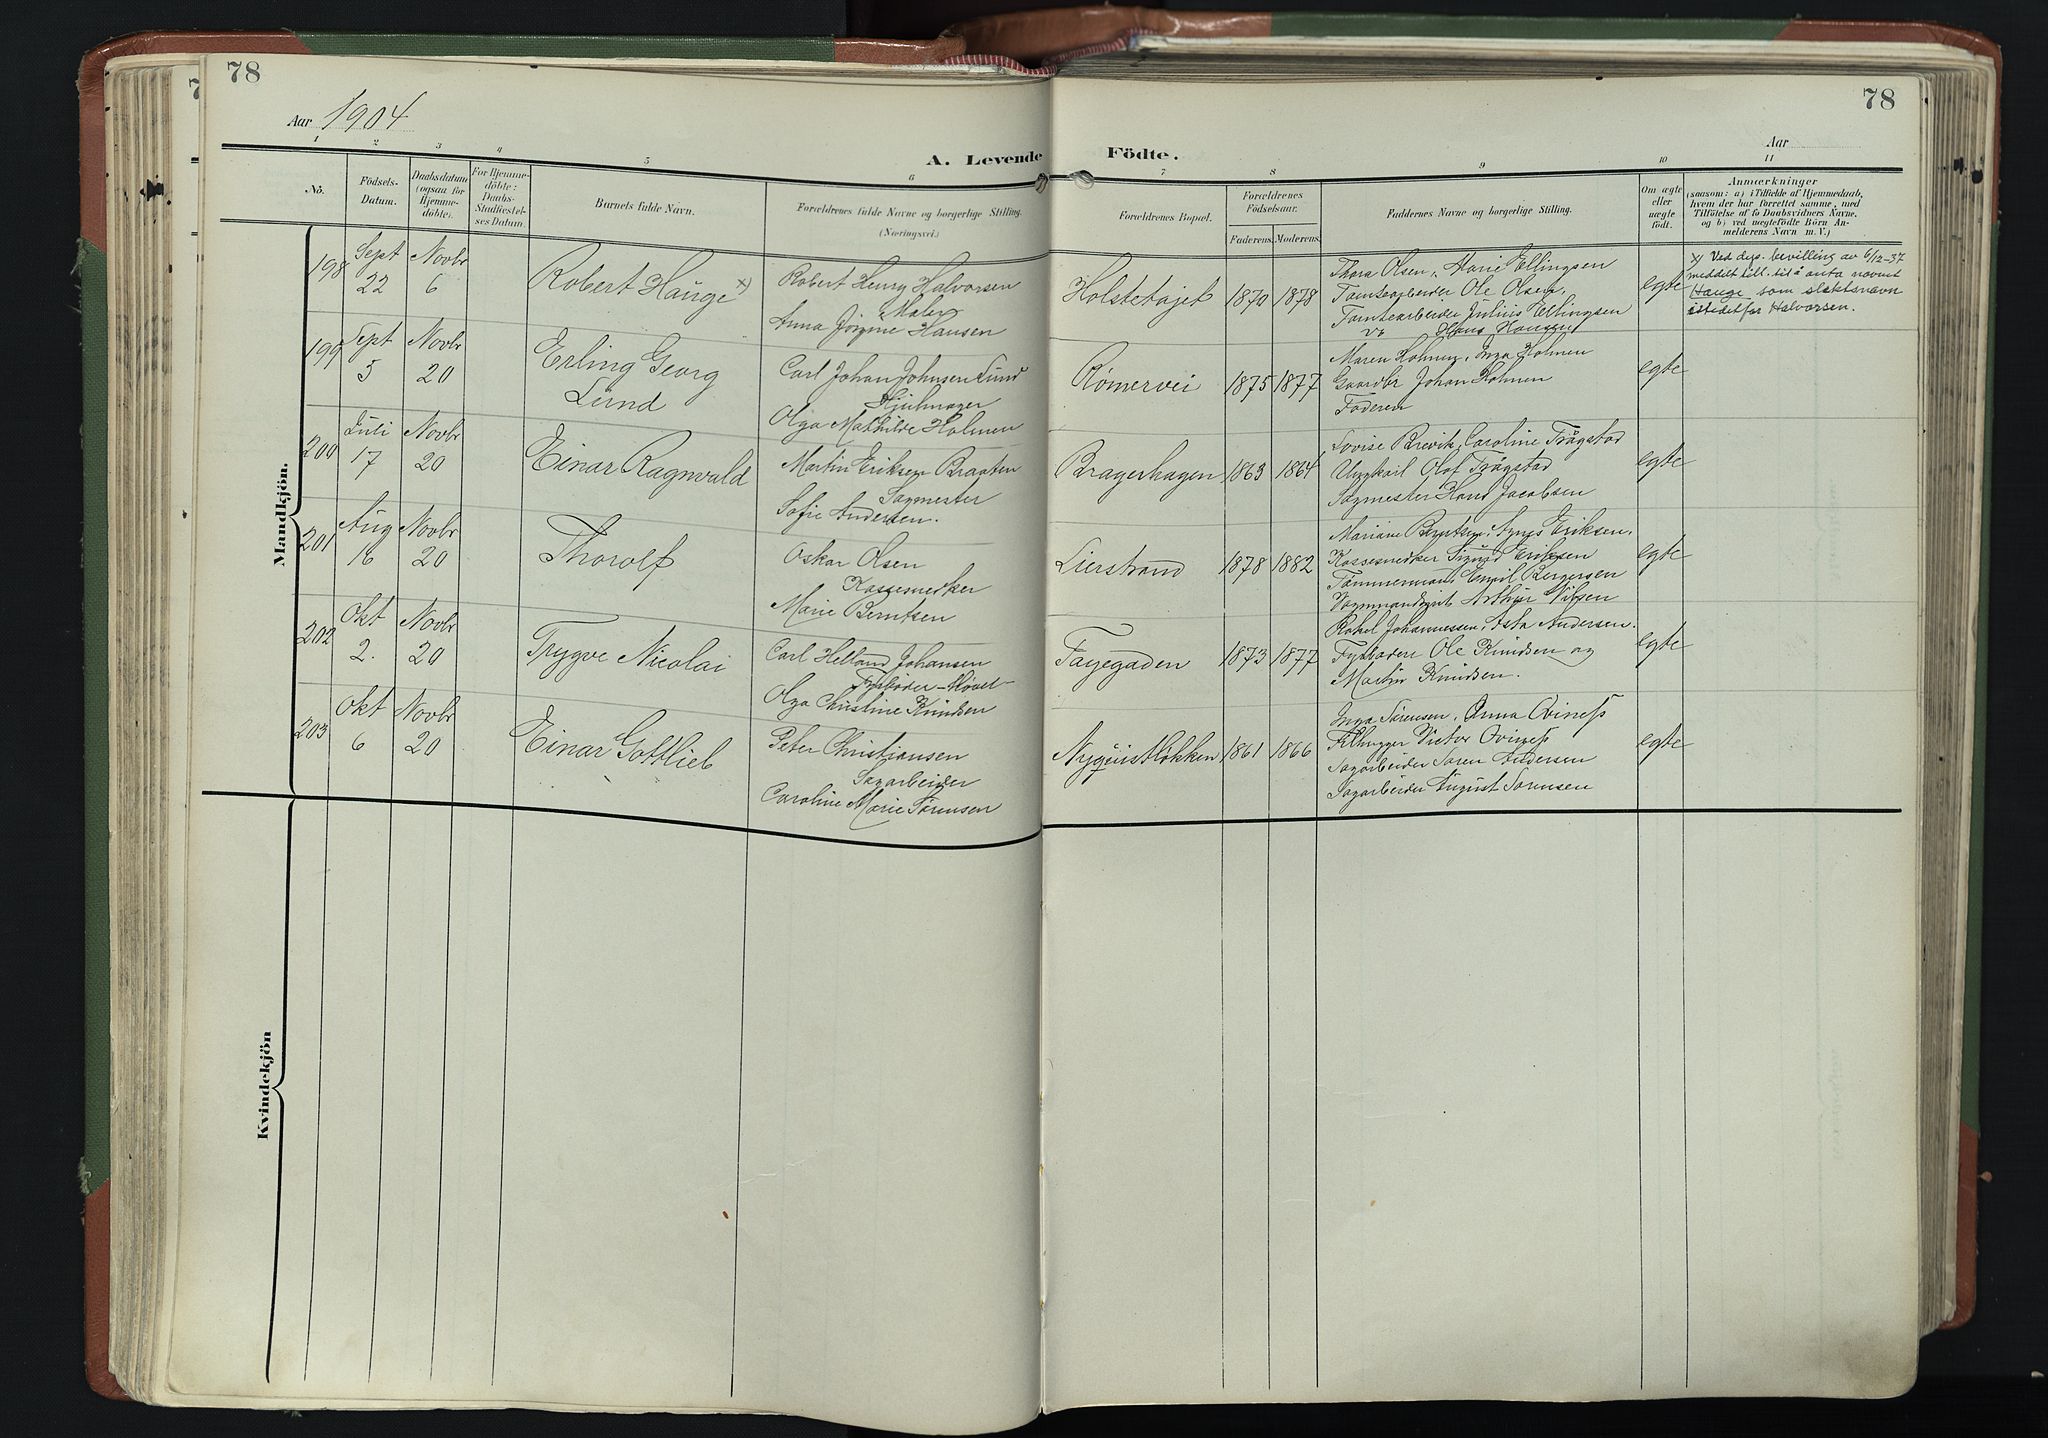 78
78
Aar 1904
Aar
A. Levende Födte.
1 2 3 4 5 6 7 8 9 10 11
No.
Födsels-
Datum.
Daabsdatum
(ogsaa for
Hjemme-
döbte).
For Hjemme-
döbte:
Daabs-
Stadfæstel-
ses Datum.
Barnets fulde Navn.
Forældrenes fulde Navne og borgerlige Stilling.
(Næringsvei.)
Forældrenes Bopæl.
Forældrenes
Födselsaar.
Faderens. Moderens.
Faddernes Navne og borgerlige Stilling.
Om ægte
eller
uægte
født.
Anmærkninger
(saasom: a) i Tilfælde af Hjemmedaab,
hvem der har forrettet samme, med
Tilföielse af to Daabsvidners Navne,
og b) ved uægtefödte Börn An-
melderens Navn m. V.)
Mandkjön.
198
Sept
22
Novbr
6
Robert Hauge x)
Robert Henry Halvorsen
Maler
Anna Jörgine Hansen
Holstetøjet
1870
1878
Thora Olsen, Marie Ellingsen
Tomtearbeider Ole Olsen,
Tomtearbeider Julius Ellingsen
Hans Hansen
egte
x) Ved dep. bevilling av 6/12-37
meddelt till. til å anta navnet
Hauge som slektsnavn
istedetfor Halvorsen.
199
Sept
5
Novbr
20
Erling Georg
Lund
Carl Johan Johnsen Lund
Hjulmager
Olga Mathilde Holmen
Rømervei
1875
1877
Maren Holmen, Inga Holmen
Gaardbr Johan Holmen
Faderen
egte
200
Juli
17
Novbr
20
Einar Ragnvald
Martin Eriksen Braaten
Sagmester
Sofie Andersen.
Bragerhagen
1863
1864
Lovise Brevik, Caroline Trøgstad
Olaf Trøgstad
Sagmester Hans Jacobsen
egte
201
Aug
16
Novbr
20
Thorolf
Oskar Olsen
Kassesnedker
Marie Berntsen
Lierstrand
1878
1882
Mariane Berntsen, Agnes Eriksen,
Kassesnedker Sigurd Eriksen
Tømmermand Emil Bergersen
Arthur Nilsen
egte
202
Okt
2.
Novbr
20
Trygve Nicolai
Carl Helland Johansen
Fyrbøder
Olga Christine Knudsen
Tayegaden
1873
1877
Rakel Johannessen, Asta Andersen.
Fyrbødere Ole Knudsen og
Martin Knudsen.
egte
203
Okt
6
Novbr
20
Einar Gottlieb
Peter Christiansen
Sagarbeider
Caroline Marie Sørensen
1861
1866
Inga Sørensen, Anna Oviness
Filhugger Victor Oviness
Sagarbeider Soren Andersen
Sagarbeider August Sorensen
egte
Kvindekjön